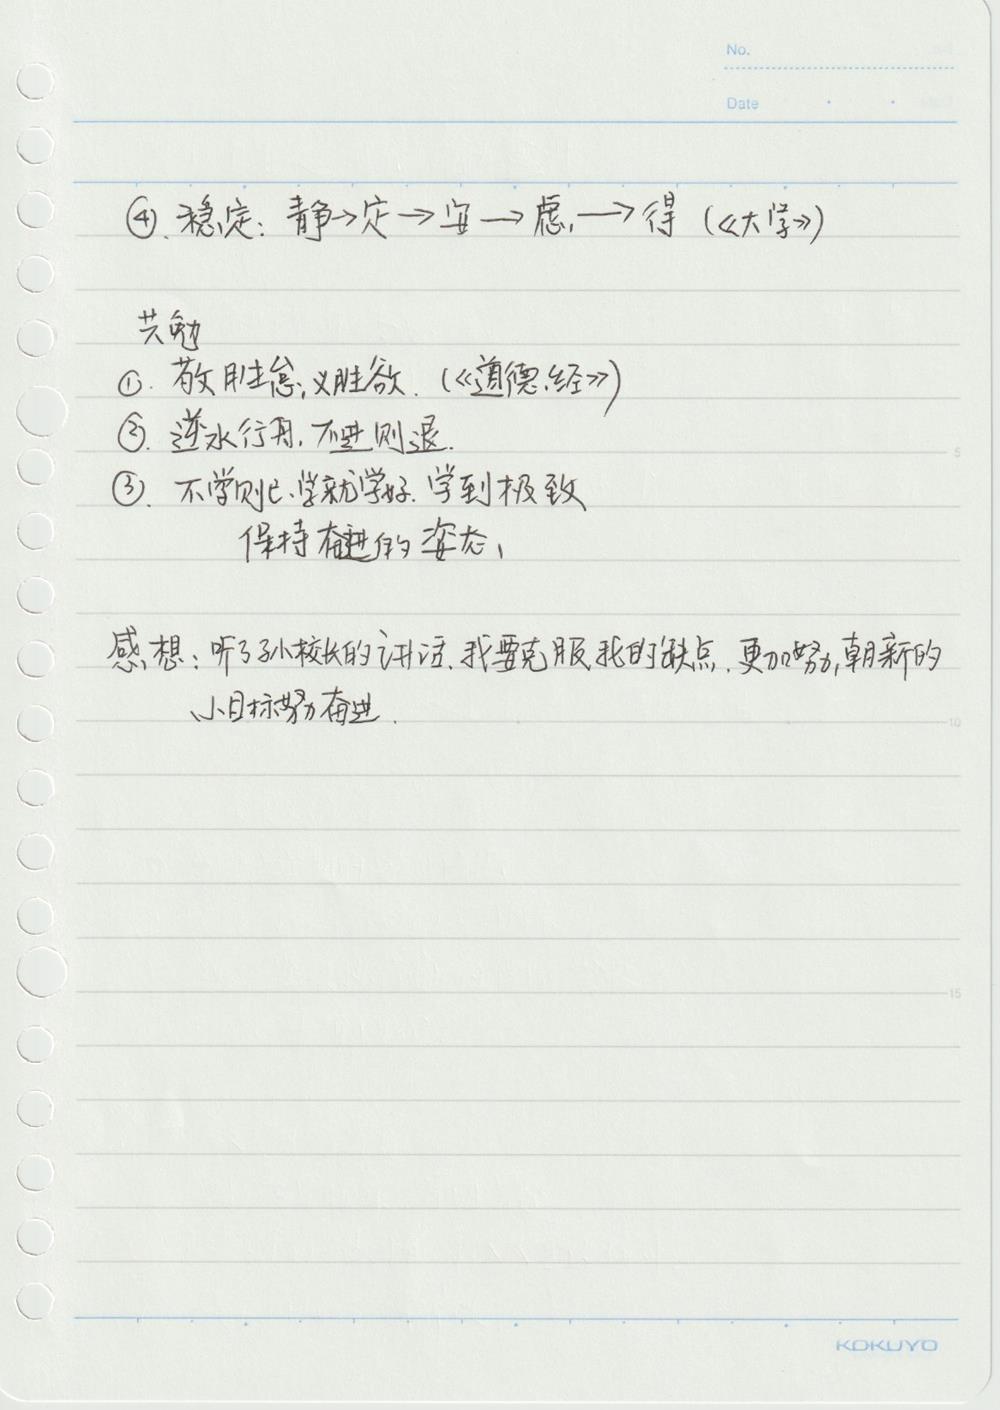 No.
Date
④. 稳定：静→定→安→虑→得（《大学》）
共勉
①. 敬胜怠，义胜欲.（《道德经》）
②. 逆水行舟，不进则退.
5
③. 不学则已、学就学好. 学到极致
保持奋进的姿态，
感想：听了孙校长的讲话、我要克服我的缺点. 更加努力，朝新的
小目标努力奋进.
10
15
KOKUYO